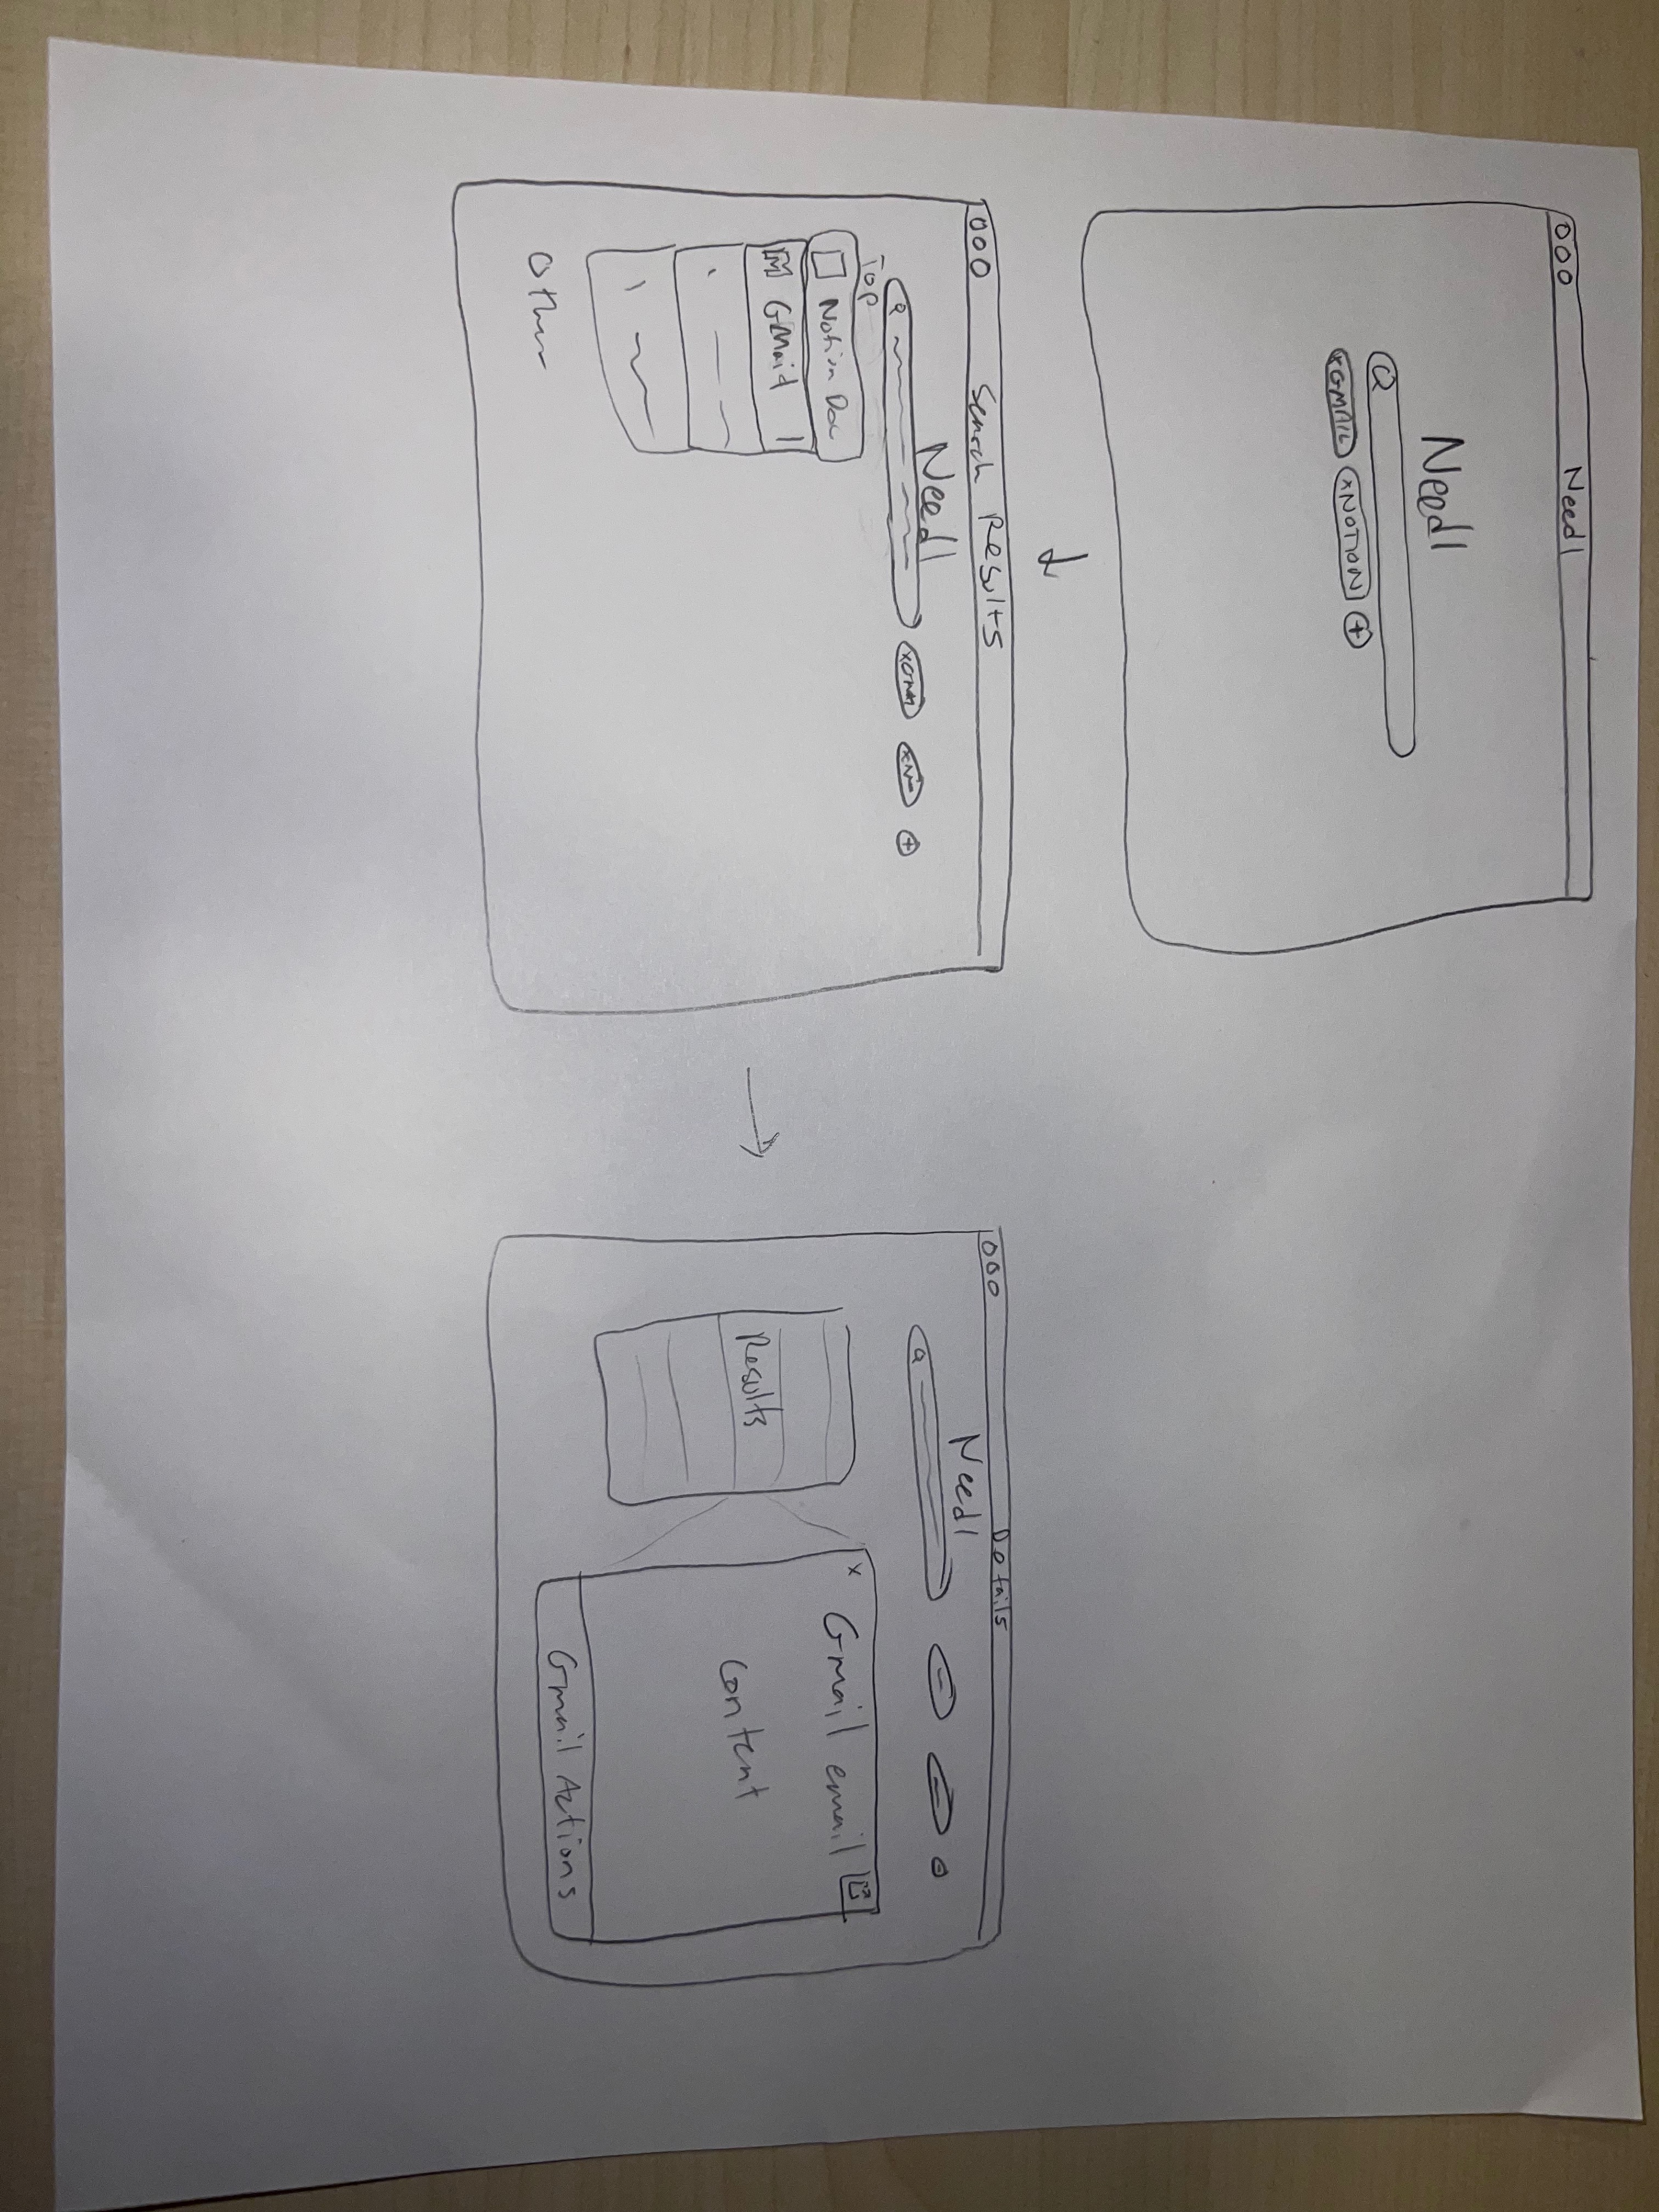 Needl
Needl
Q
x GMAIL x NOTION +
Search Results
Needl
Q x x N +
Top
Notion Doc
M GMail
Other
Details
Needl
Q
Results
x Gmail email
Content
Gmail Actions